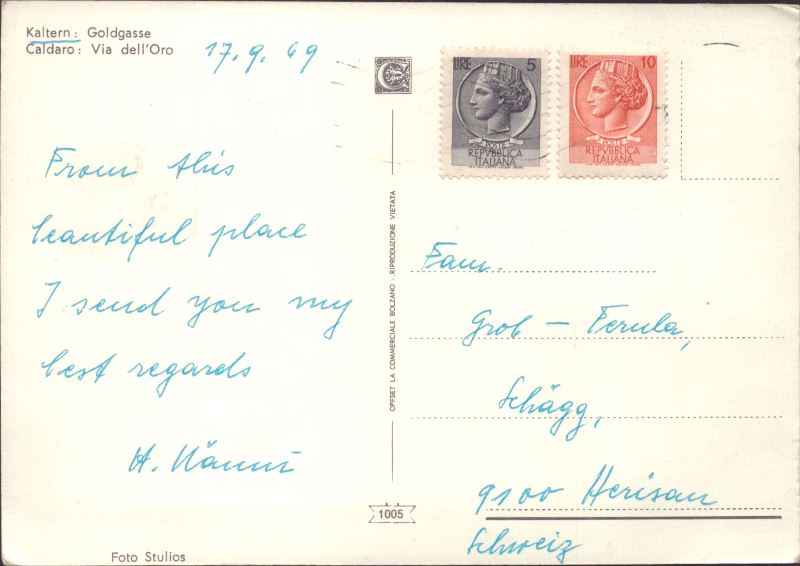 Kaltern: Goldgasse
Caldaro: Via dell'Oro
17.9.69
From this
beautiful place
I send you my
best regards
H. Nänni
Foto Stulios
OFFSET LA COMMERCIALE BOLZANO - RIPRODUZIONE VIETATA
1005
LIRE 5
POSTE
REPVBBLICA
ITALIANA
LIRE 10
POSTE
REPVBBLICA
ITALIANA
Fam.
Grob - Ferula,
Schägg,
9100 Herisau
Schweiz